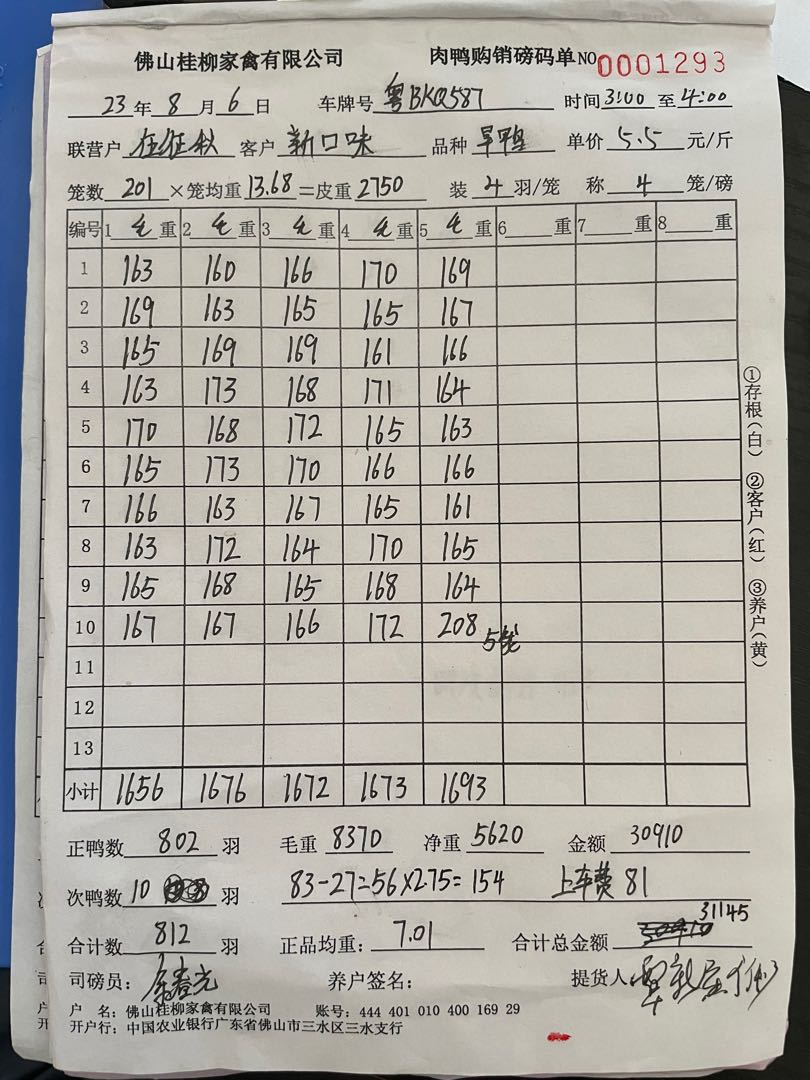 佛山桂柳家禽有限公司 肉鸭购销磅码单 NO 0001293
23 年 8 月 6 日 车牌号 粤BKQ587 时间 3:00 至 4:00
联营户 伍征秋 客户 新口味 品种 旱鸭 单价 5.5 元/斤
笼数 201 ×笼均重 13.68 =皮重 2750 装 4 羽/笼 称 4 笼/磅
编号 1 毛 重 2 毛 重 3 毛 重 4 毛 重 5 毛 重 6 重 7 重 8 重
1 163 160 166 170 169
2 169 163 165 165 167
3 165 169 169 161 166
4 163 173 168 171 164
5 170 168 172 165 163
6 165 173 170 166 166
7 166 163 167 165 161
8 163 172 164 170 165
9 165 168 165 168 164
10 167 167 166 172 208 5笼
11
12
13
小计 1656 1676 1672 1673 1693
①存根(白) ②客户(红) ③养户(黄)
正鸭数 802 羽 毛重 8370 净重 5620 金额 30910
次鸭数 10 羽 83-27=56×2.75=154 上车费 81
合计数 812 羽 正品均重: 7.01 合计总金额 31145
司磅员: 养户签名: 提货人
户 名: 佛山桂柳家禽有限公司 账号: 444 401 010 400 169 29
开户行: 中国农业银行广东省佛山市三水区三水支行